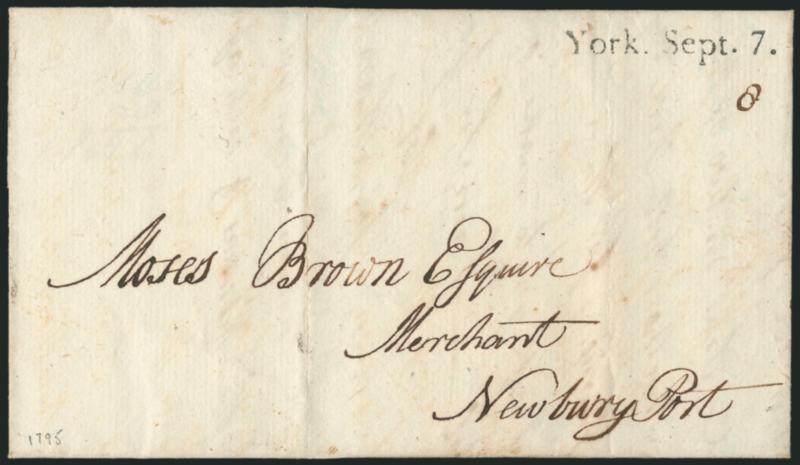 York. Sept. 7.
8
Moses Brown Esquire
Merchant
Newbury Port
1795